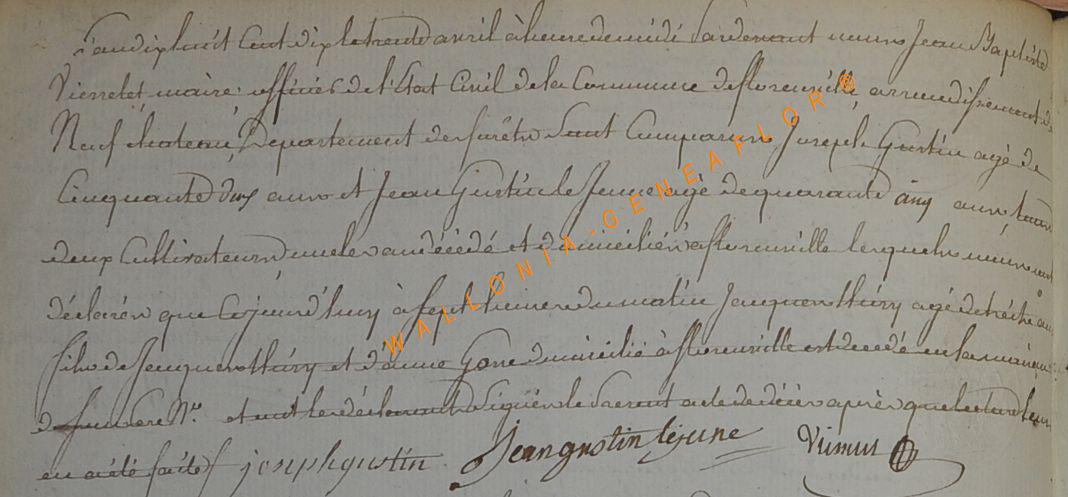 L'an dix huit cent dix le trente avril à heure de midi Pardevant nous Jean Baptiste
Vierrelet maire officier de l'Etat Civil de la Commune de florenville arrondissement de
Neufchateau, Département des forêts Sont Comparus Joseph Gustin agé de
Cinquante ans et Jean Gustin le Jeune agé de quarante cinq ans tous
deux Cultivateurs oncles au décédé et domiciliés à florenville lesquels nous ont
déclarés que Cejourd'huy à sept heures du matin Jacques thiry agé de treize ans
fils de Jacques thiry et d'anne Gone domicilié à florenville est décédé en la maison
de son Pere N.° et ont les déclarants Signés le Present acte de décès après que lecture leur
en a été faite / joseph gustin Jean gustin lejeune
WALLONIA-GENEAFLOR ®